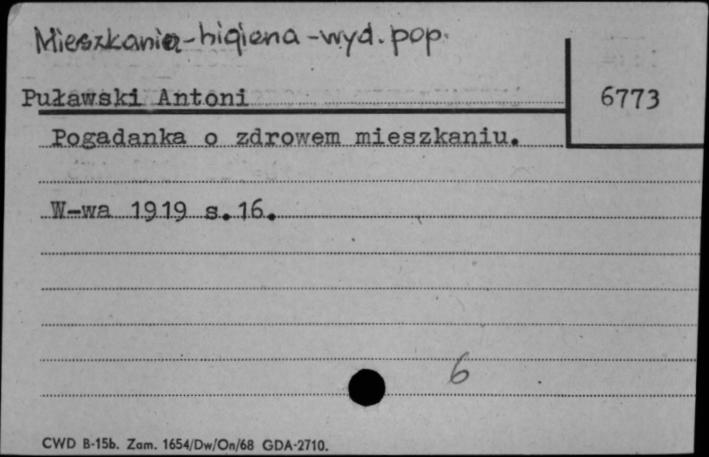 Mieszkania-higiena-wyd.pop.
Puławski Antoni
6773
Pogadanka o zdrowem mieszkaniu.
W-wa 1919 s.16.
6
CWD B-15b. Zam. 1654/Dw/On/68 GDA-2710.